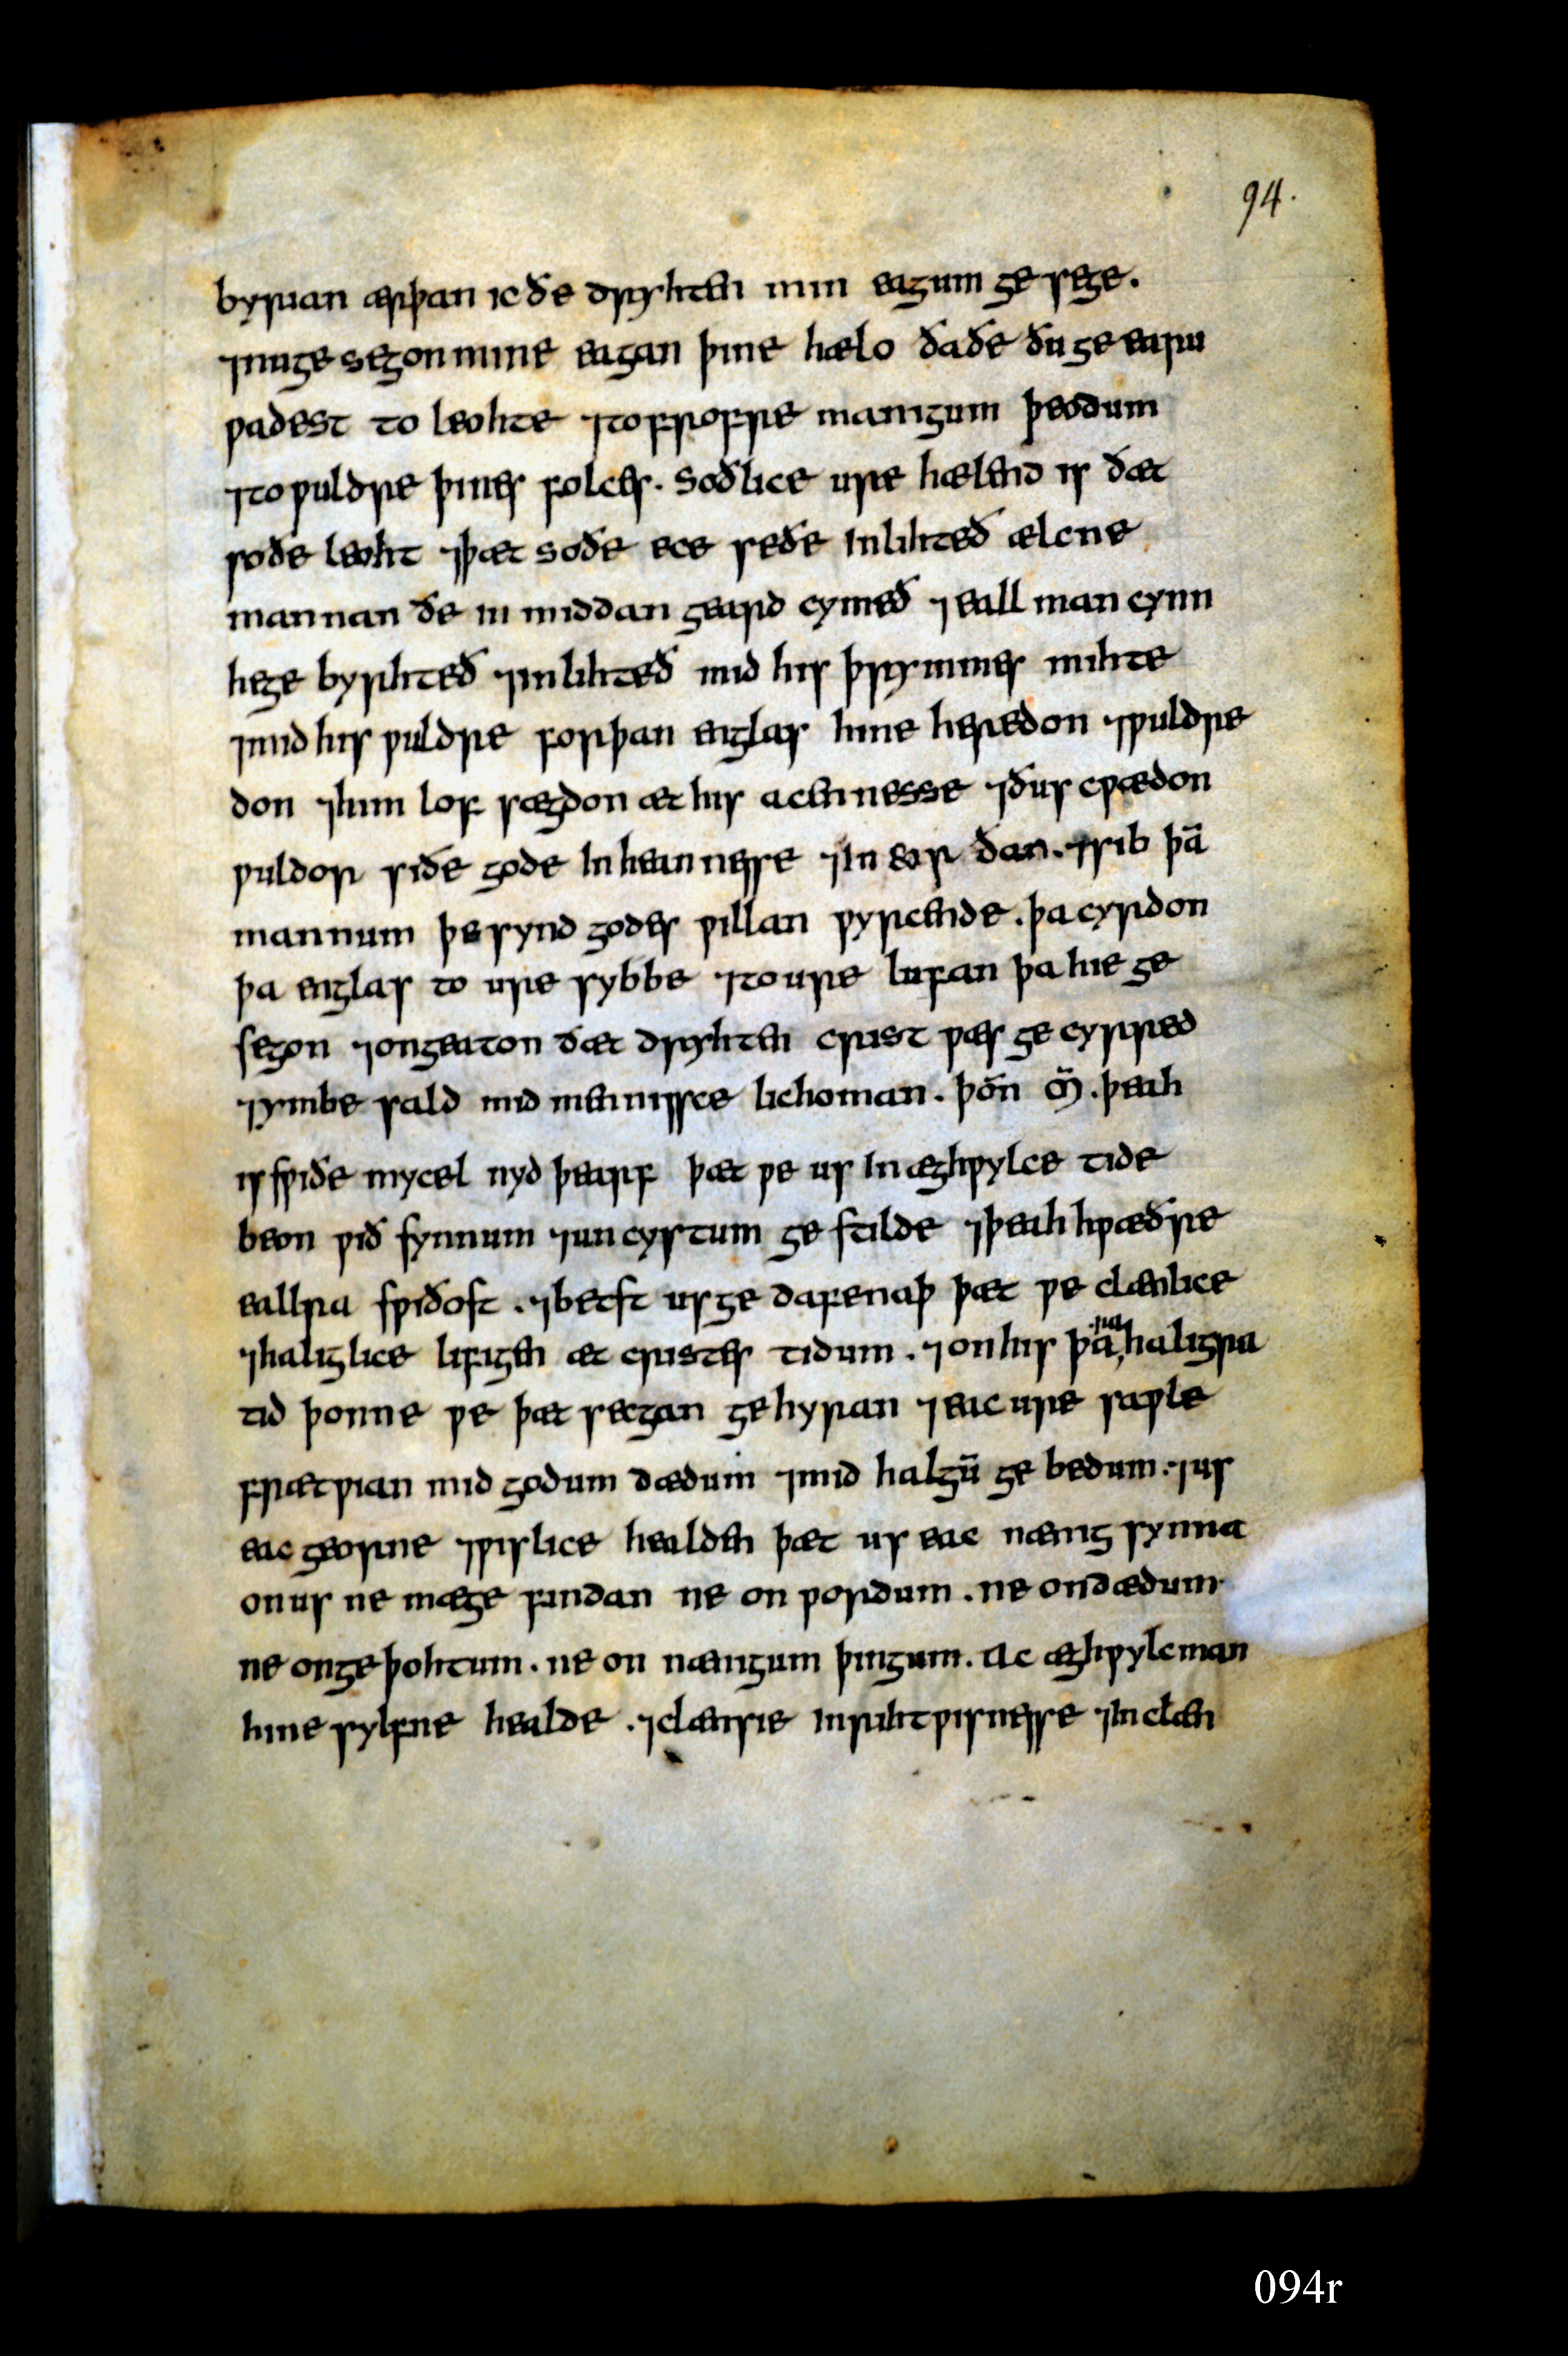 94.
byrian ærþan ic ðe dryhten min eagum ge sege.
⁊nu ge segon mine eagan þine hælo ða ðe ðu ge earu
ƿadest to leohte ⁊to frofre manigum þeodum
⁊to ƿuldre þines folces. Soðlice ure hælend is ðæt
soðe leoht ⁊þæt soðe ece seðe inlihteð ælcne
mannan ðe in middan geard cymeð ⁊eall man cynn
he ge byrihteð ⁊inlihteð mid his þrymmes mihte
⁊mid his ƿuldre forþan englas hine heredon ⁊ƿuldre
don ⁊him lof sægdon æt his acennesse ⁊ðus cƿædon
ƿuldor siðe gode in heannesse ⁊in eor ðan. ⁊sib þā
mannum þe synd godes ƿillan ƿyrcende. þa cyrdon
þa englas to ure sybbe ⁊to ure lufan þa hie ge
segon ⁊ongeaton ðæt dryhten crist ƿæs ge cyrred
⁊ymbe sald mid mennissce lichoman. þoñ m̃. þeah
is sƿiðe mycel nyd þearf þæt ƿe us in æghƿylce tide
beon ƿið synnum ⁊un cystum ge stilde ⁊þeah hƿæðre
ealra sƿiðost. ⁊betst us ge dafenaþ þæt ƿe clænlice
⁊haliglice lifigen æt cristes tidum. ⁊on his þāra haligra
tid þonne ƿe þæt secgan ge hyran ⁊eac ure saƿle
frætƿian mid godum dædum ⁊mid halgū ge bedum. ⁊us
eac georne ⁊ƿislice healden þæt us eac nænig synna
on us ne mæge findan ne on ƿordum. ne on dædum
ne on ge þohtum. ne on nængum þingum. Ac æghƿylc man
hine sylfne healde. ⁊clænsie in rihtƿisnesse ⁊in clæn
094r